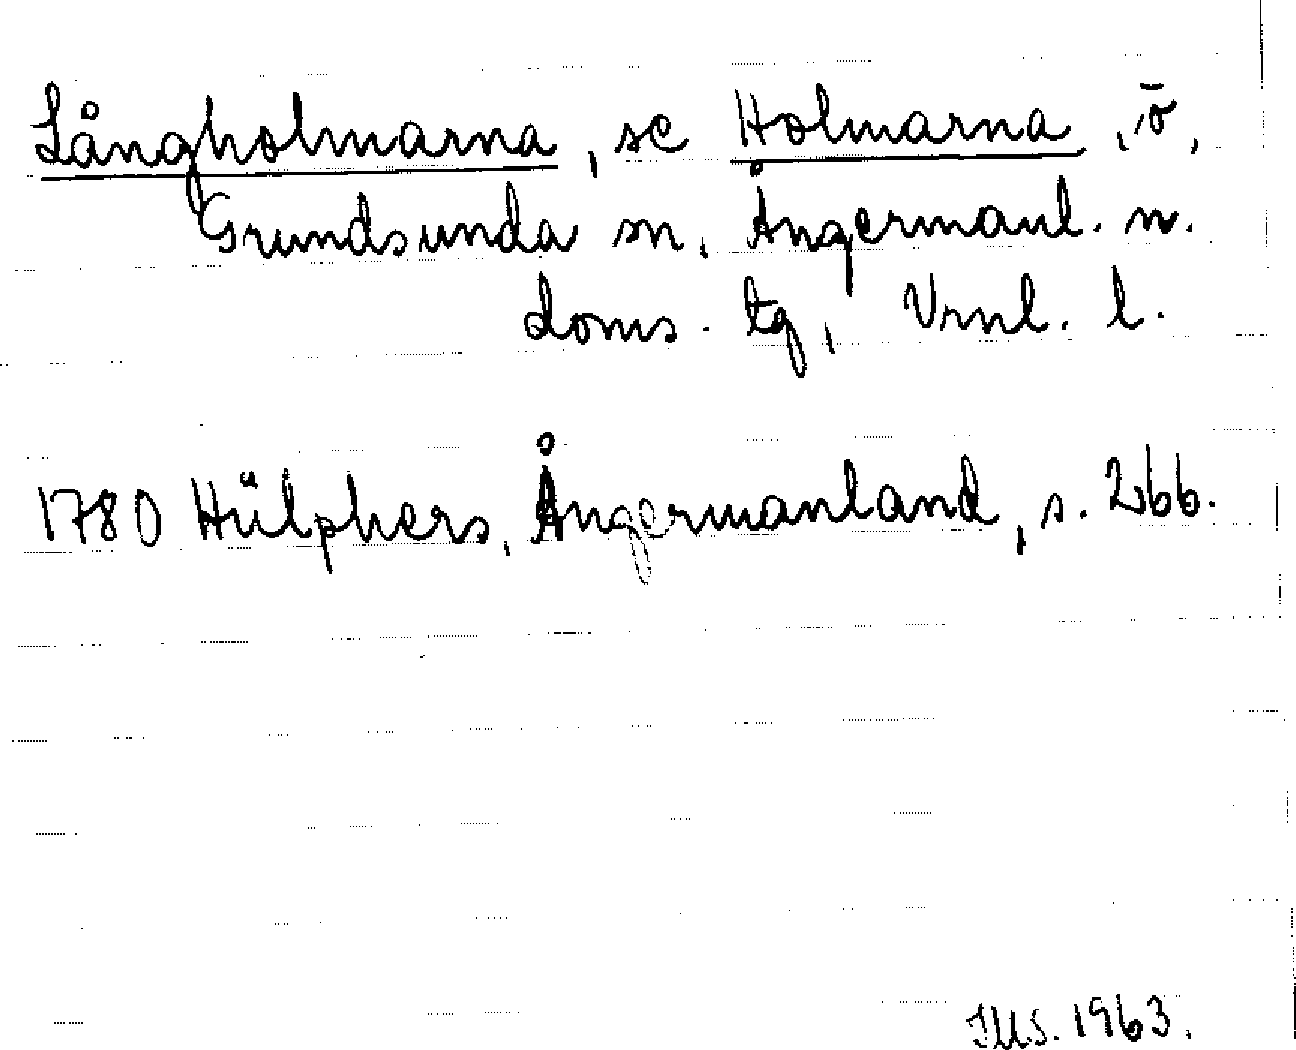 Långholmarna, se Holmarna, ö,
Grundsunda sn, Ångermanl. n.
doms. tg, Vrnl. l.
1780 Hülphers, Ångermanland, s. 266.
IMS. 1963.